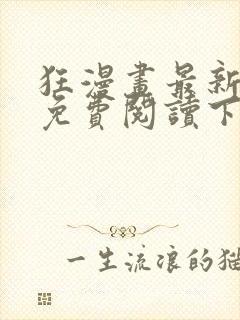 狂漫畫最新
免費閱讀下
一生流浪的猫